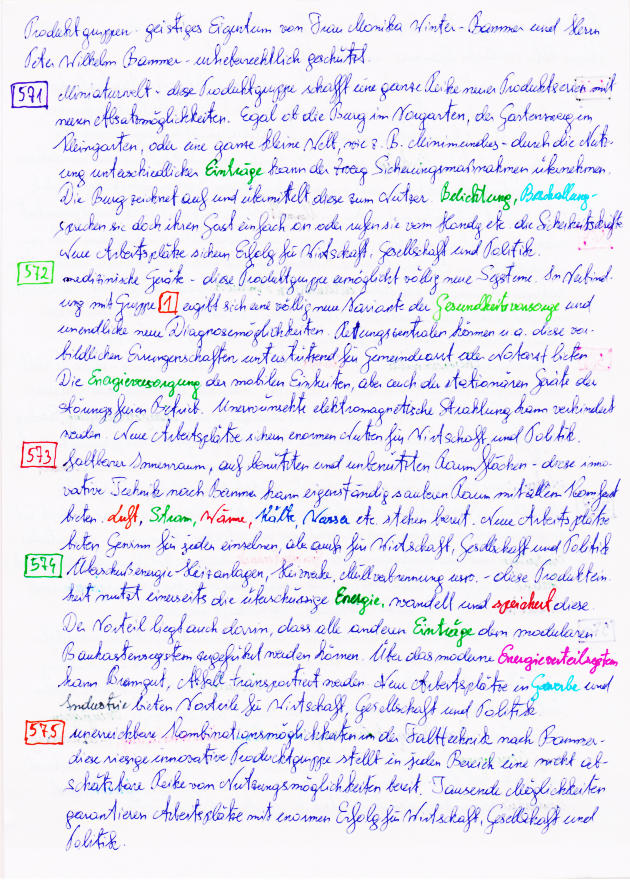 Produktgruppen - geistiges Eigentum von Frau Monika Winter-Bammer und Herrn
Peter Wilhelm Bammer - urheberrechtlich geschützt.
571 Miniaturwelt - diese Produktgruppe schafft eine ganze Reihe neuer Produktserien mit
neuen Absatzmöglichkeiten. Egal ob die Burg im Vorgarten, der Gartenzwerg im
Kleingarten, oder eine ganze kleine Welt, wie z. B. Minimundus - durch die Nutz-
ung unterschiedlicher Einträge kann der Zwerg Sicherungsmaßnahmen übernehmen.
Die Burg zeichnet auf und übermittelt diese zum Nutzer. Belichtung, Beschallung -
sprechen sie doch ihren Gast einfach an oder rufen sie vom Handy etc. die Sicherheitskräfte
Neue Arbeitsplätze sichern Erfolg für Wirtschaft, Gesellschaft und Politik.
572 medizinische Geräte - diese Produktgruppe ermöglicht völlig neue Systeme. In Verbind-
ung mit Gruppe 1 ergibt sich eine völlig neue Variante der Gesundheitsvorsorge und
unendliche neue Diagnosemöglichkeiten. Rettungszentralen können u.a. diese vor-
bildlichen Errungenschaften unterstützend für Gemeindearzt oder Notarzt bieten
Die Energieversorgung der mobilen Einheiten, aber auch der stationären Geräte der
störungsfreien Betrieb. Unerwünschte elektromagnetische Strahlung kann verhindert
werden. Neue Arbeitsplätze sichern enormen Nutzen für Wirtschaft, und Politik.
573 faltbarer Innenraum, auf benützten und unbenützten Raumflächen - diese inno-
vative Technik nach Bammer kann eigenständig sauberen Raum mit allem Komfort
bieten. Luft, Strom, Wärme, Kälte, Wasser etc. stehen bereit. Neue Arbeitsplätze
bieten Gewinn für jeden einzelnen, aber auch für Wirtschaft, Gesellschaft und Politik
574 Überschußenergie Heizanlagen, Heizwerke, Müllverbrennung usw. - diese Produktein-
heit nutzt einerseits die überschüssige Energie, wandelt und speichert diese.
Der Vorteil liegt auch darin, dass alle anderen Einträge dem modularen
Baukastensystem zugeführt werden können. Über das moderne Energieverteilsystem
kann Brenngut, Abfall transportiert werden. Neue Arbeitsplätze in Gewerbe und
Industrie bieten Vorteile für Wirtschaft, Gesellschaft und Politik.
575 unerreichbare Kombinationsmöglichkeiten in der Falttechnik nach Bammer -
diese riesige innovative Produktgruppe stellt in jeden Bereich eine nicht ab-
schätzbare Reihe von Nutzungsmöglichkeiten bereit. Tausende Möglichkeiten
garantieren Arbeitsplätze mit enormen Erfolg für Wirtschaft, Gesellschaft und
Politik.